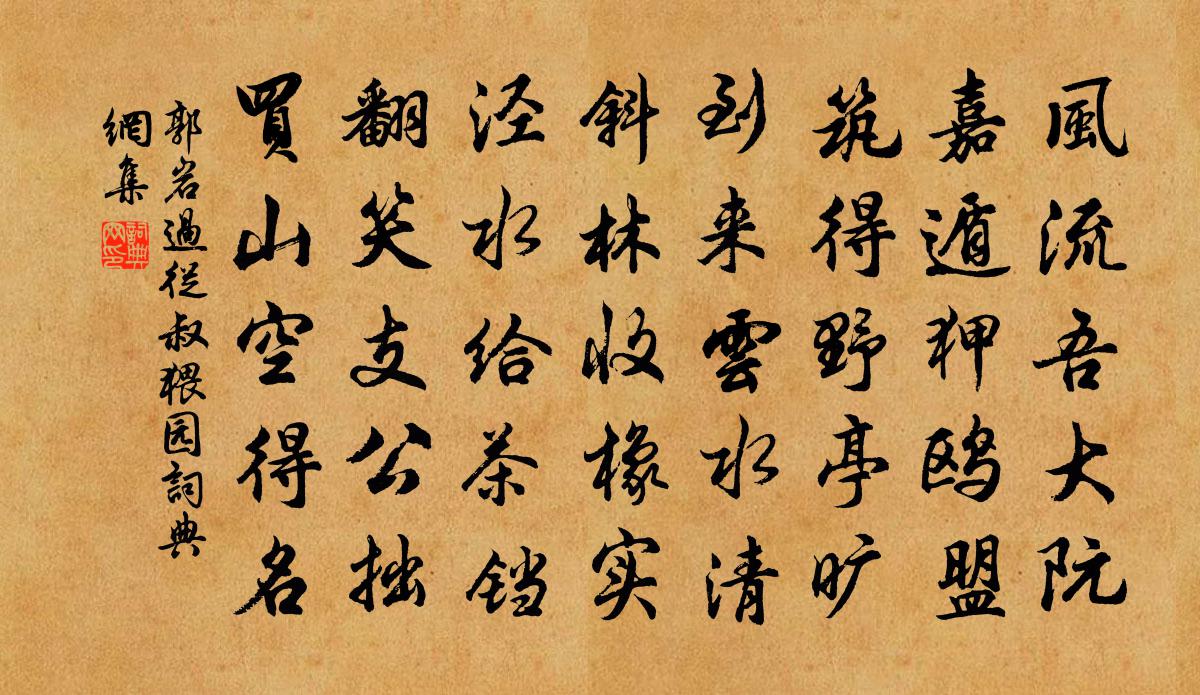 風流吾大阮
嘉遁狎鸥盟
筑得野亭旷
到来雲水清
斜林收橡实
泾水给茶铛
翻笑支公拙
買山空得名
郭岩過從叔猥园詞典
網集
詞典
网印